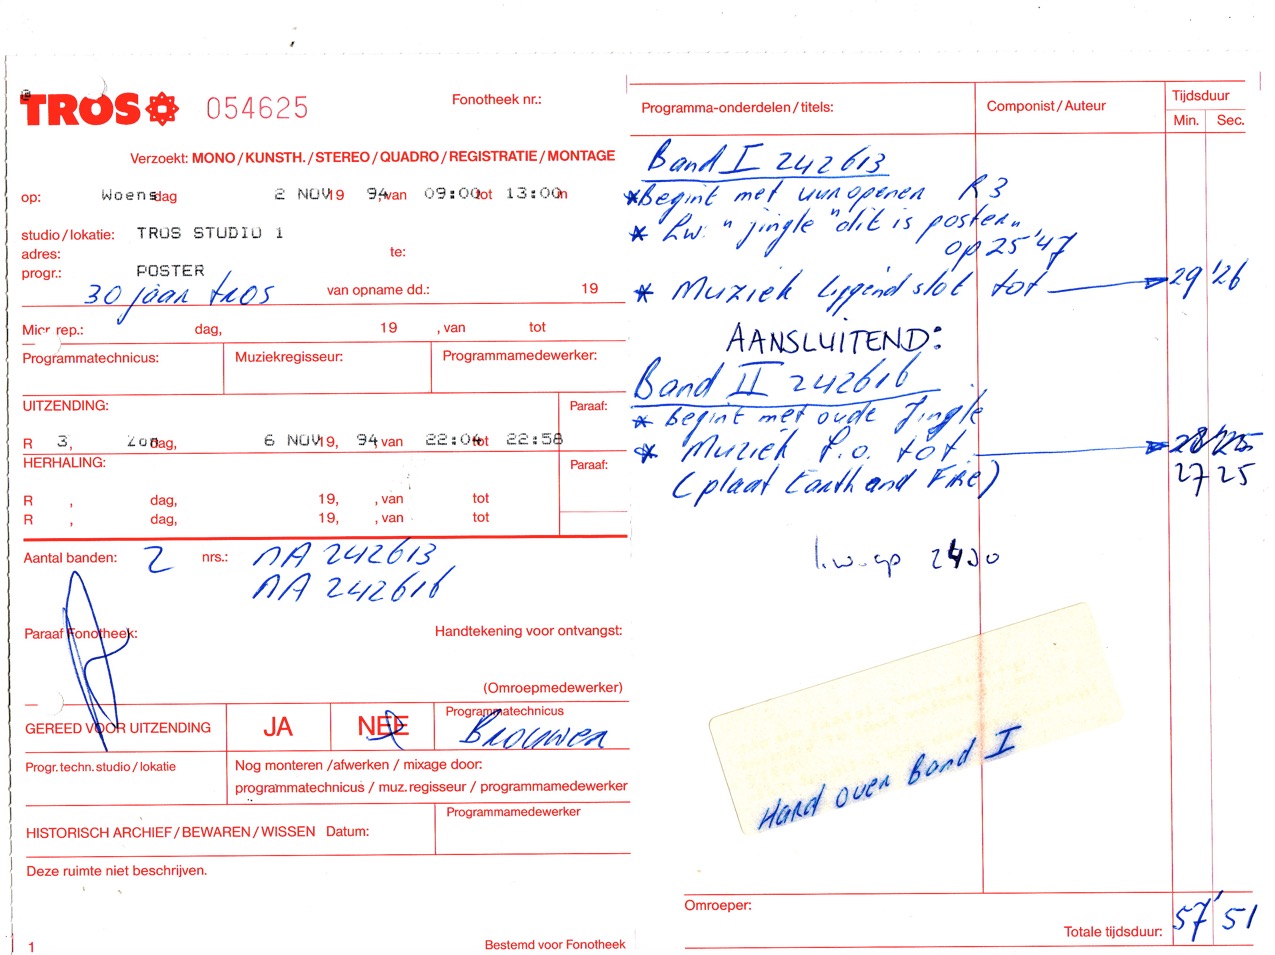 TROS
054625
Fonotheek nr.:
Verzoekt: MONO / KUNSTH. / STEREO / QUADRO / REGISTRATIE / MONTAGE
op: Woensdag 2 NOV 19 94, van 09:00 tot 13:00
studio / lokatie: TROS STUDIO 1
adres: te:
progr.: POSTER
30 jaar tros van opname dd.: 19
Micr. rep.: dag, 19 , van tot
Programmatechnicus: Muziekregisseur: Programmamedewerker:
UITZENDING: Paraaf:
R 3, Zondag, 6 NOV 19, 94, van 22:04 tot 22:58
HERHALING: Paraaf:
R , dag, 19, , van tot
R , dag, 19, , van tot
Aantal banden: 2 nrs.: MA 242613
MA 242616
Paraaf Fonotheek: Handtekening voor ontvangst:
(Omroepmedewerker)
GEREED VOOR UITZENDING JA NEE Programmatechnicus
Brouwer
Progr. techn. studio / lokatie Nog monteren / afwerken / mixage door:
programmatechnicus / muz. regisseur / programmamedewerker
Programmamedewerker
HISTORISCH ARCHIEF / BEWAREN / WISSEN Datum:
Deze ruimte niet beschrijven.
1 Bestemd voor Fonotheek
Programma-onderdelen / titels: Componist / Auteur Tijdsduur
Min. Sec.
Band I 242613
* Begint met uuropener R3
* L.w. "jingle "dit is poster"
op 25'47
* Muziek liggend slot tot 29'26
AANSLUITEND:
Band II 242616
* Begint met oude Jingle
* Muziek f.o. tot 28'25
(plaat Earth and Fire) 27 25
l.w. op 2400
Hard over Band I
Omroeper:
Totale tijdsduur: 57'51